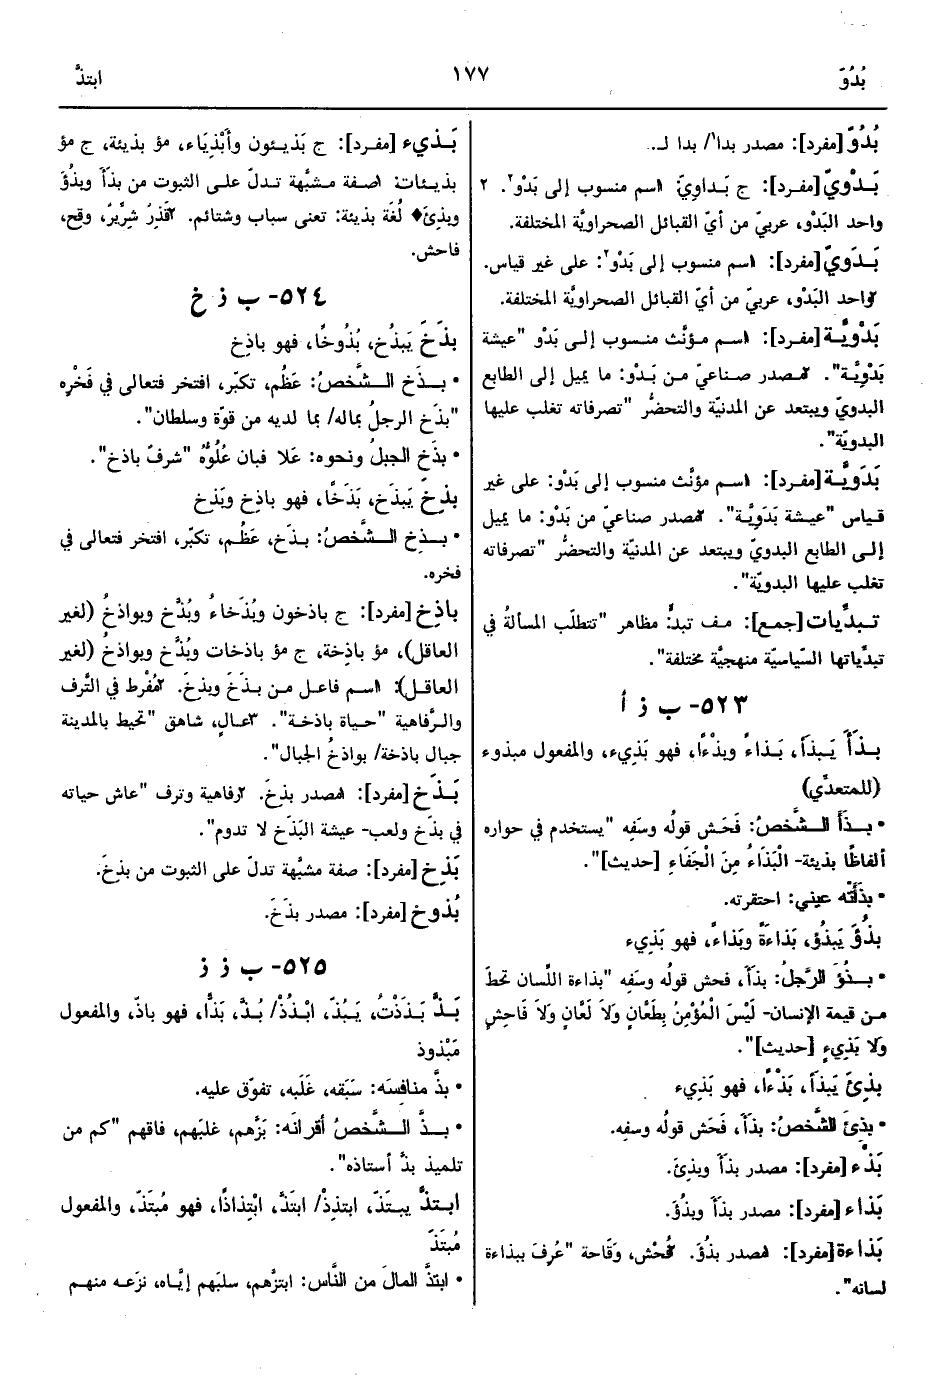 بُدُوّ
١٧٧
ابتذَّ
بُدُوّ [مفرد]: مصدر بدا١/ بدا لـ.
بَدْويّ [مفرد]: ج بَداويّ: ١اسم منسوب إلى بَدْو٢. ٢
واحد البَدْو، عربيّ من أيّ القبائل الصحراويَّة المختلفة.
بَدَويّ [مفرد]: ١اسم منسوب إلى بَدْو٢: على غير قياس.
٢واحد البَدْو، عربيّ من أيّ القبائل الصحراويَّة المختلفة.
بَدْويَّة [مفرد]: ١اسم مؤنَّث منسوب إلى بَدْو "عيشة
بَدْويَّة". ٢مصدر صناعيّ من بَدْو: ما يميل إلى الطابع
البدويّ ويبتعد عن المدنيّة والتحضُّر "تصرفاته تغلب عليها
البدويّة".
بَدَويَّة [مفرد]: ١اسم مؤنَّث منسوب إلى بَدْو: على غير
قياس "عيشة بَدَويَّة". ٢مصدر صناعيّ من بَدْو: ما يميل
إلى الطابع البدويّ ويبتعد عن المدنيّة والتحضُّر "تصرفاته
تغلب عليها البدويّة".
تبدِّيات [جمع]: مف تبدٍّ: مظاهر "تتطلّب المسألةُ في
تبدِّياتها السِّياسيّة منهجيَّة مختلفة".
٥٢٣- ب ذ أ
بذَأَ يَبذَأ، بَذاءً وبذْءًا، فهو بَذِيء، والمفعول مبذوء
(للمتعدِّي)
• بذَأَ الشَّخصُ: فَحَش قولُه وسَفِه "يستخدم في حواره
ألفاظًا بذيئة- الْبَذَاءُ مِنَ الْجَفَاءِ [حديث]".
• بذَأَتْه عيني: احتقرته.
بذُؤَ يَبذُؤ، بَذاءَةً وبَذاءً، فهو بَذِيء
• بذُؤَ الرَّجلُ: بذَأَ، فحش قولُه وسَفِه "بذاءة اللِّسان تحطّ
من قيمة الإنسان- لَيْسَ الْمُؤْمِنُ بِطَعَّانٍ وَلاَ لَعَّانٍ وَلاَ فَاحِشٍ
وَلاَ بَذِيءٍ [حديث]".
بذِئَ يَبذَأ، بَذْءًا، فهو بَذِيء
• بذِئَ الشَّخصُ: بذَأَ، فَحَش قولُه وسفِه.
بَذْء [مفرد]: مصدر بذَأَ وبذِئَ.
بَذاء [مفرد]: مصدر بذَأَ وبذُؤَ.
بَذاءة [مفرد]: ١مصدر بذُؤَ. ٢فُحْش، وَقَاحة "عُرِفَ ببذاءة
لسانه".
بَذيء [مفرد]: ج بَذيئون وأَبْذِيَاء، مؤ بذيئة، ج مؤ
بذيئات: ١صفة مشبَّهة تدلّ على الثبوت من بذَأَ وبذُؤَ
وبذِئَ♦ لُغَة بذيئة: تعنى سباب وشتائم. ٢قَذِرٌ شِرِّيرٌ، وقح،
فاحش.
٥٢٤- ب ذ خ
بذَخَ يَبذُخ، بُذُوخًا، فهو باذِخ
• بذَخ الشَّخصُ: عَظُم، تكبّر، افتخر فتعالى في فَخْرِه
"بذَخ الرجلُ بماله/ بما لديه من قوّة وسلطان".
• بذَخ الجبلُ ونحوه: عَلا فبان عُلُوُّه "شرفٌ باذخ".
بذِخَ يَبذَخ، بَذَخًا، فهو باذِخ وبَذِخ
• بذِخ الشَّخصُ: بذَخ، عَظُم، تكبّر، افتخر فتعالى في
فخره.
باذِخ [مفرد]: ج باذخون وبُذَخاءُ وبُذَّخ وبواذخُ (لغير
العاقل)، مؤ باذِخة، ج مؤ باذخات وبُذَّخ وبواذخُ (لغير
العاقل): ١اسم فاعل من بذَخَ وبذِخَ. ٢مُفْرط في التَّرف
والرَّفاهية "حياة باذخة". ٣عالٍ، شاهق "تحيط بالمدينة
جبال باذخة/ بواذخُ الجبال".
بَذَخ [مفرد]: ١مصدر بذِخَ. ٢رفاهية وترف "عاش حياته
في بذَخ ولعب- عيشة البَذَخ لا تدوم".
بَذِخ [مفرد]: صفة مشبَّهة تدلّ على الثبوت من بذِخَ.
بُذوخ [مفرد]: مصدر بذَخَ.
٥٢٥- ب ذ ذ
بَذَّ بَذَذْتُ، يَبُذّ، ابْذُذْ/ بُذَّ، بَذًّا، فهو باذّ، والمفعول
مَبْذوذ
• بذَّ منافسَه: سَبَقه، غَلَبه، تفوّق عليه.
• بذَّ الشَّخصُ أقرانَه: بَزَّهم، غلبَهم، فاقهم "كم من
تلميذ بذَّ أستاذه".
ابتذَّ يبتَذّ، ابتذِذْ/ ابتَذَّ، ابْتِذاذًا، فهو مُبتَذّ، والمفعول
مُبتَذّ
• ابتذَّ المالَ من النَّاس: ابتزَّهم، سلبَهم إيَّاه، نزَعه منهم